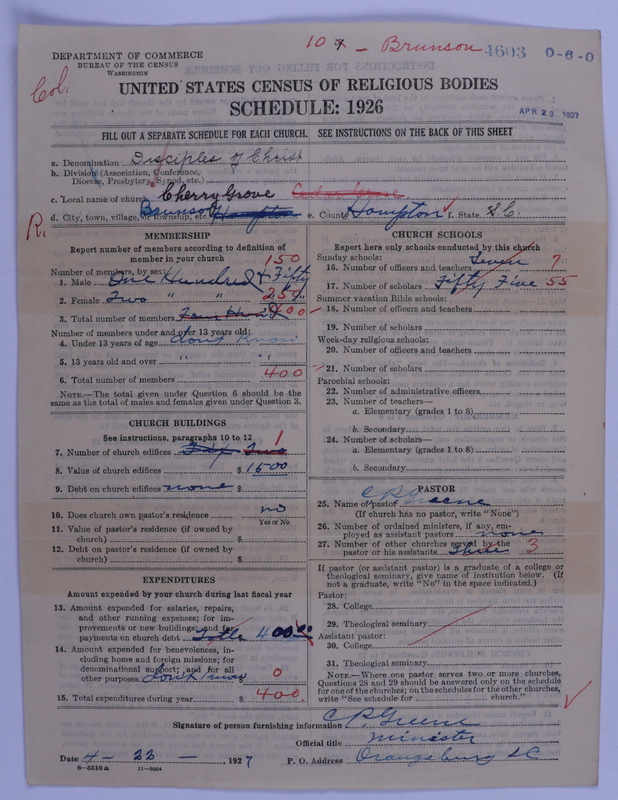 10 7 - Brunson 4603 0-6-0
DEPARTMENT OF COMMERCE
BUREAU OF THE CENSUS
WASHINGTON
Col.
UNITED STATES CENSUS OF RELIGIOUS BODIES
SCHEDULE: 1926
APR 23 1927
FILL OUT A SEPARATE SCHEDULE FOR EACH CHURCH. SEE INSTRUCTIONS ON THE BACK OF THIS SHEET
a. Denomination Disciples of Christ
b. Division (Association, Conference,
Diocese, Presbytery, Synod, etc.)
c. Local name of church Cherry Grove Cedar Grove
d. City, town, village, or township, etc. Brunson Hampton e. County Hampton f. State S.C.
R.
MEMBERSHIP
Report number of members according to definition of
member in your church
Number of members, by sex: 150
1. Male One Hundred & Fifty
2. Female Two " " 250
3. Total number of members Four Hund 400
Number of members under and over 13 years old:
4. Under 13 years of age dont Know
5. 13 years old and over " "
6. Total number of members 400
NOTE.—The total given under Question 6 should be
same as the total of males and females given under Question 3.
CHURCH BUILDINGS
See instructions, paragraphs 10 to 12
7. Number of church edifices Two 1
8. Value of church edifices $ 1500
9. Debt on church edifices none $
10. Does church own pastor's residence no
Yes or No
11. Value of pastor's residence (if owned by
church) $
12. Debt on pastor's residence (if owned by
church) $
EXPENDITURES
Amount expended by your church during last fiscal year
13. Amount expended for salaries, repairs,
and other running expenses; for im-
provements or new buildings; and for
payments on church debt Total 400.00
14. Amount expended for benevolences, in-
cluding home and foreign missions; for
denominational support; and for all
other purposes Dont Know 0
15. Total expenditures during year $ 400.
CHURCH SCHOOLS
Report here only schools conducted by this church
Sunday schools:
16. Number of officers and teachers Seven 7
17. Number of scholars Fifty Five 55
Summer vacation Bible schools:
18. Number of officers and teachers
19. Number of scholars
Week-day religious schools:
20. Number of officers and teachers
21. Number of scholars
Parochial schools:
22. Number of administrative officers
23. Number of teachers—
a. Elementary (grades 1 to 8)
b. Secondary
24. Number of scholars—
a. Elementary (grades 1 to 8)
b. Secondary
PASTOR
25. Name of pastor C P Greene
(If church has no pastor, write "None")
26. Number of ordained ministers, if any, em-
ployed as assistant pastors none
27. Number of other churches served by the
pastor or his assistants Three 3
If pastor (or assistant pastor) is a graduate of a college or
theological seminary, give name of institution below. (If
not a graduate, write "No" in the space indicated.)
Pastor:
28. College
29. Theological seminary
Assistant pastor:
30. College
31. Theological seminary
NOTE.—Where one pastor serves two or more churches,
Questions 28 and 29 should be answered only on the schedule
for one of the churches; on the schedules for the other churches,
write "See schedule for church."
Signature of person furnishing information C P Greene
Official title Minister
Date 4 - 22 - , 1927 P. O. Address Orangeburg S C
8—5518 a 11—9064